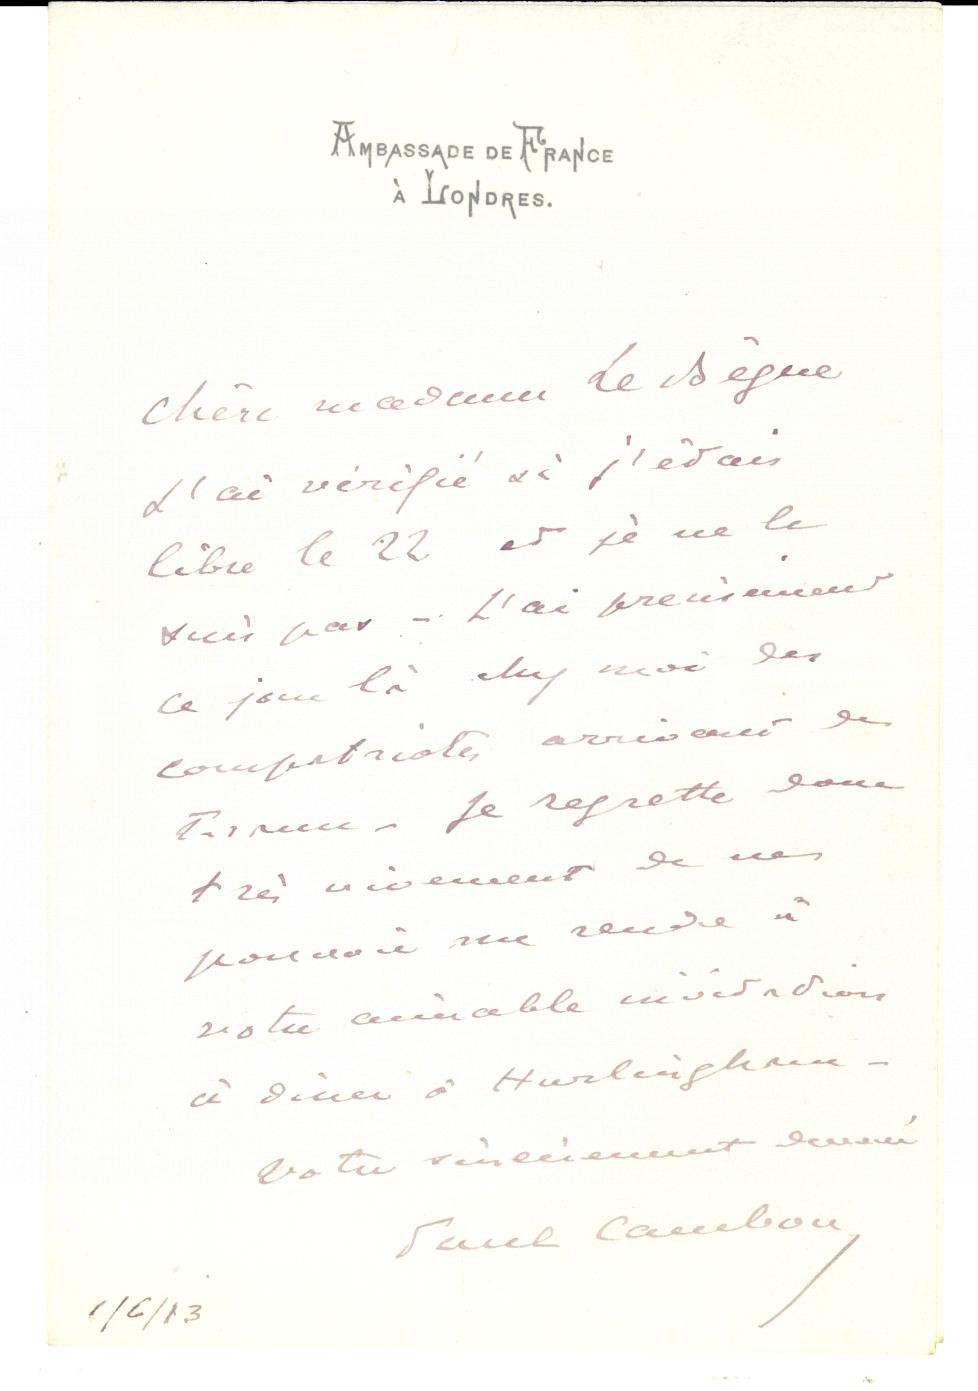 AMBASSADE DE FRANCE
À LONDRES.
Chère madame Le Bègue
J'ai vérifié si j'étais
libre le 22 et je ne le
suis pas - J'ai précisément
ce jour là chez moi des
compatriotes arrivant de
France - Je regrette donc
très vivement de ne
pouvoir me rendre à
votre aimable invitation
à diner à Hurlingham -
Votre sincèrement dévoué
Paul Cambon
1/6/13